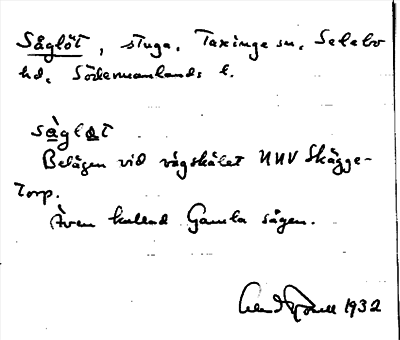 Såglöt, stuga, Taxinge sn, Selebo
hd, Södermanlands l.
sàgløt
Belägen vid vägskälet NNV Skägge-
torp.
Även kallad Gamla sågen.
1932